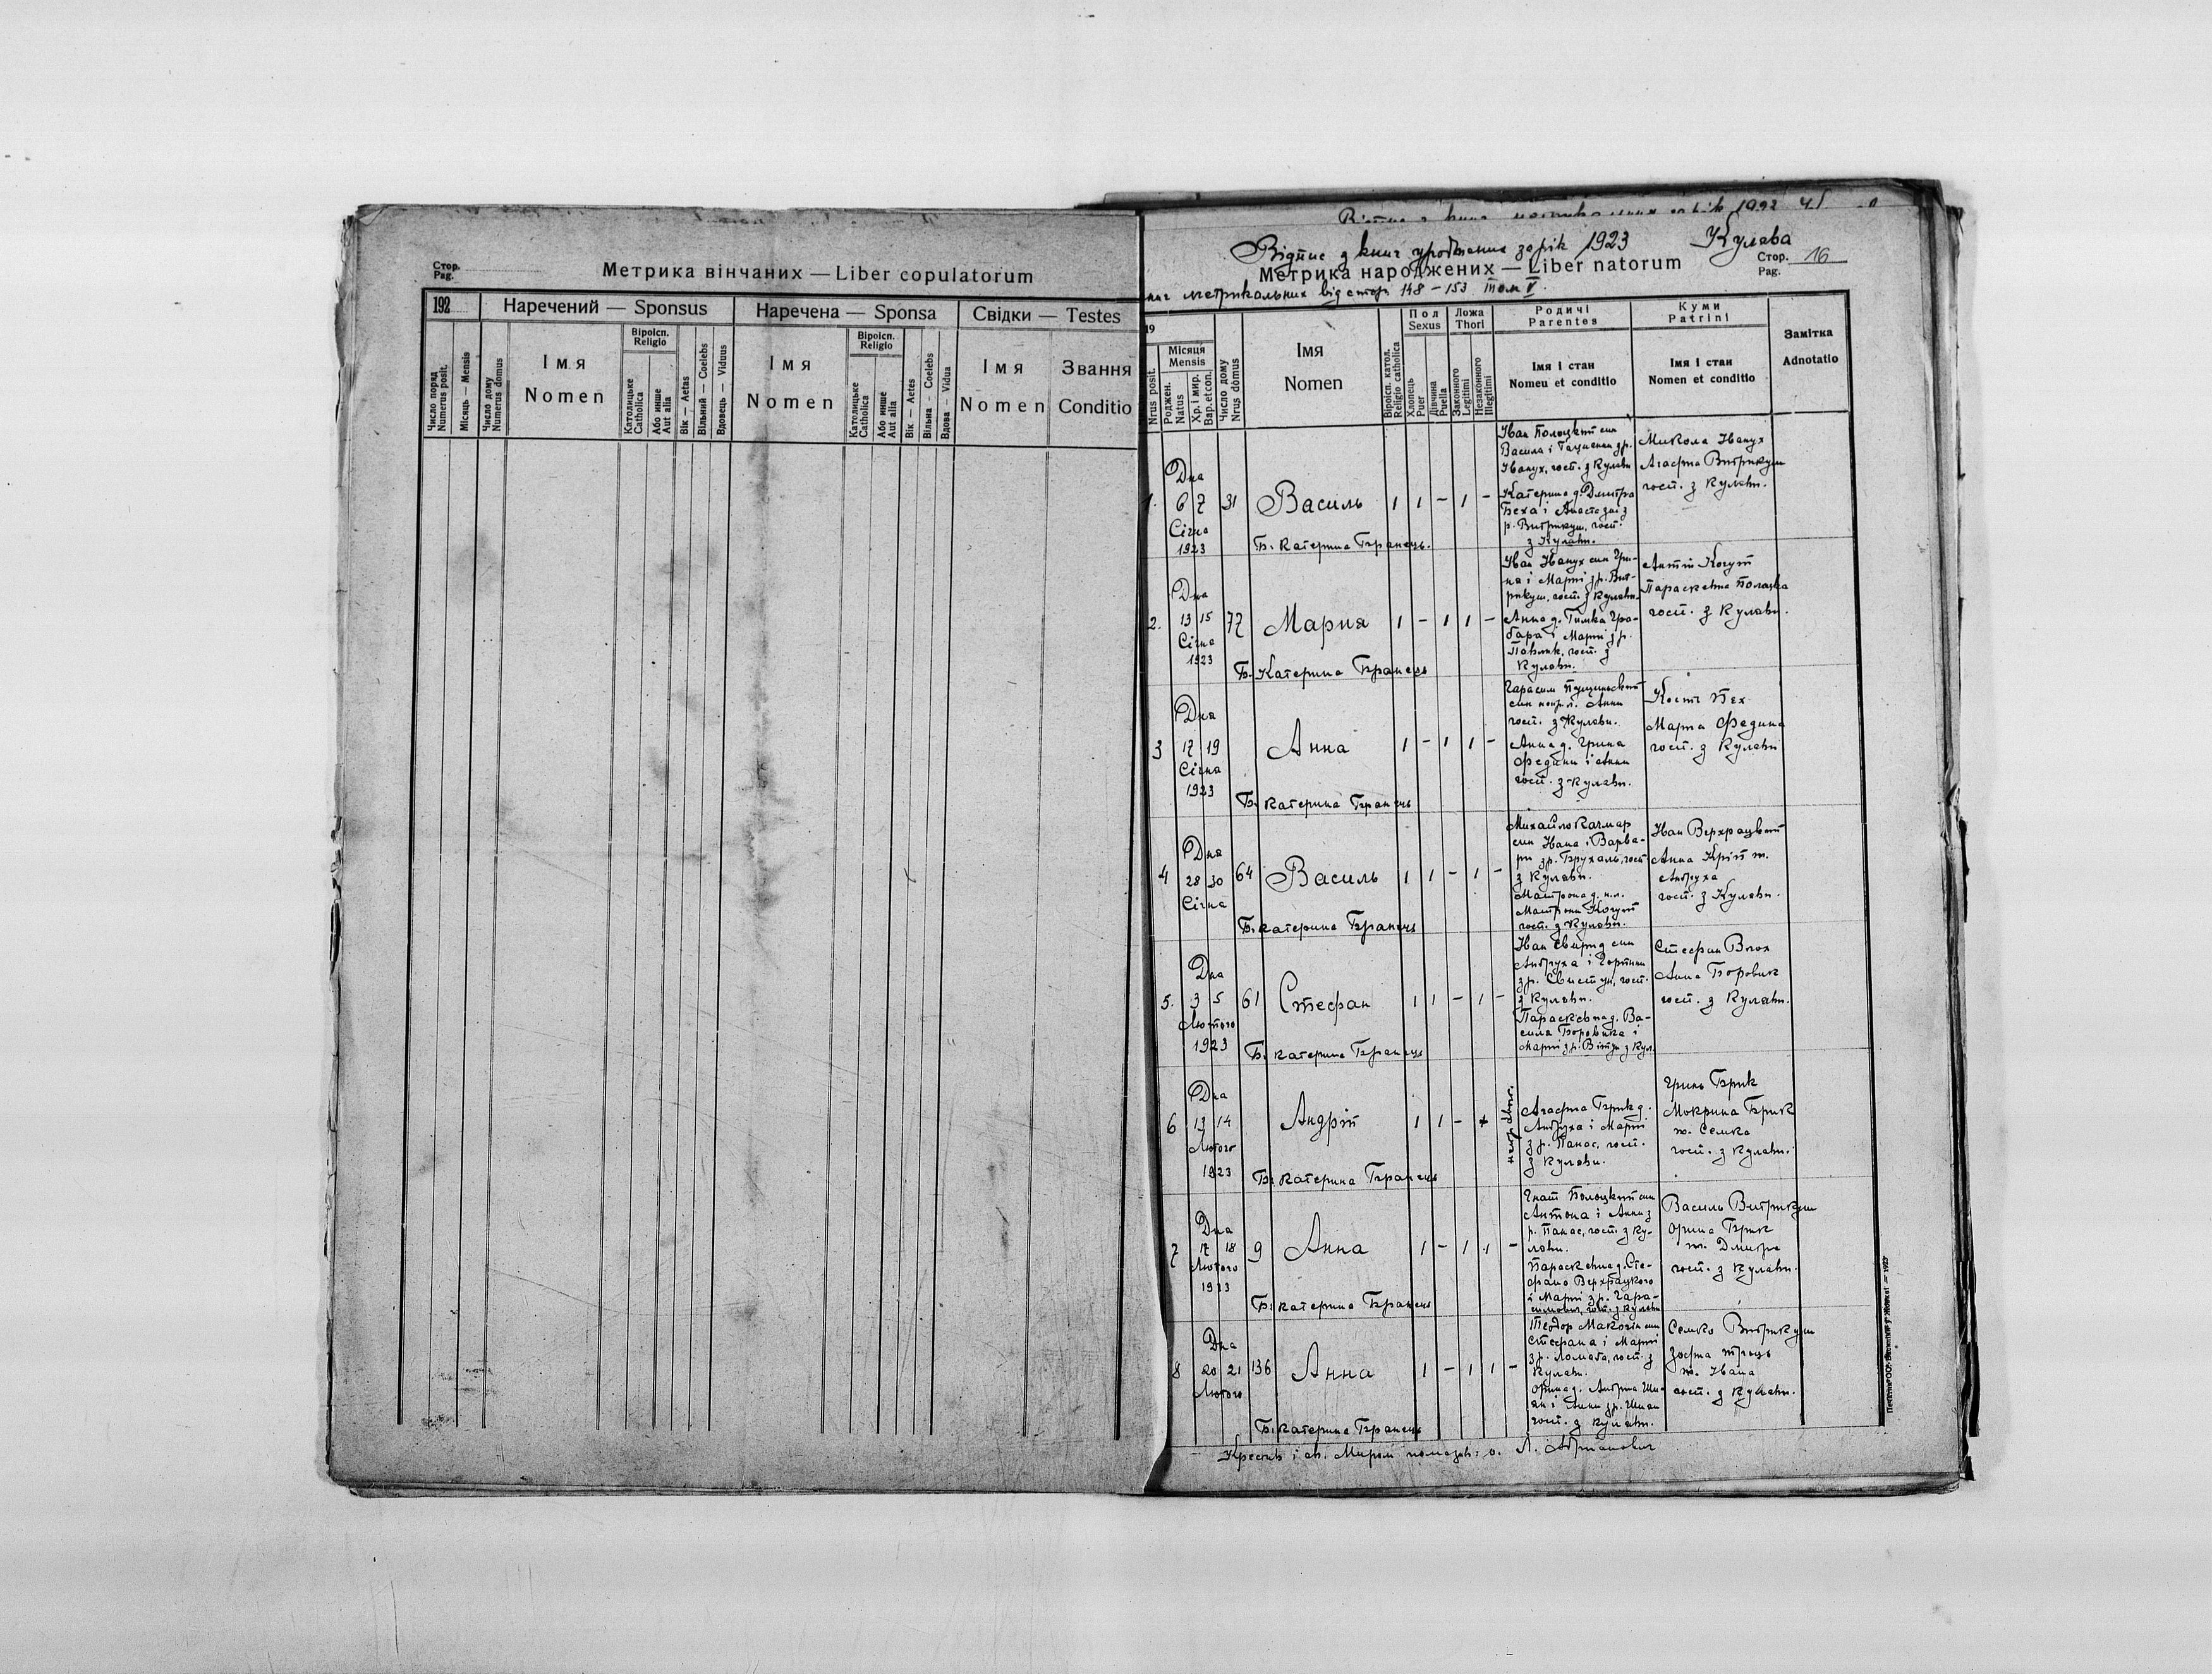 Стор.
Pag.
Метрика вінчаних — Liber copulatorum
192
Наречений — Sponsus
Наречена — Sponsa
Свідки — Testes
Число поряд.
Numerus posit.
Місяць — Mensis
Число дому
Numerus domus
Імя
Nomen
Віроісп.
Religio
Католицьке
Catholica
Або инше
Aut alia
Вік — Aetas
Вільний — Coelebs
Вдовець — Viduus
Імя
Nomen
Віроісп.
Religio
Католицьке
Catholica
Або инше
Aut alia
Вік — Aetes
Вільна — Coelebs
Вдова — Vidua
Імя
Nomen
Звання
Conditio
Відпис з книг уродження за рік 1923 Кулява
Метрика народжених — Liber natorum
Стор.
Pag. 16
метрикальних від стор. 148 – 153 том V.
19
Nrus posit.
Місяця
Mensis
Роджен.
Natus
Хр. і мир.
Bap. et con.
Число дому
Nrus domus
Імя
Nomen
Віроісп. катол.
Religio catholica
Пол
Sexus
Хлопець
Puer
Дівчина
Puella
Ложа
Thori
Законного
Legitimi
Незаконного
Illegitimi
Родичі
Parentes
Імя і стан
Nomeu et conditio
Куми
Patrini
Імя і стан
Nomen et conditio
Замітка
Adnotatio
Дна
1. 6 7 31 Василь 1 1 – 1 –
Січна
1923
Б. Катерина Бранець.
Іван Полоцкий син
Василя і
Іванух, гост. з Куляви
Катерина д. Дмитра
Беха і Анастазиї з
р. Витрикуш, гост.
з Куляви.
Микола Іванух
Агафта Витрикуш
гост. з Куляви.
Дна
2. 13 15 77 Мария 1 – 1 1 –
Січна
1923
Б. Катерина Бранець
Іван Іванух син Гри-
ня і Марії з р. Вит-
рикуш, гост. з Куляви.
Анна д. Тимка Гра-
бара і Марії з р.
Павлик, гост. з
Куляви.
Антін Когут
Параскевна Полоцка
гост. з Куляви.
Дна
3 17 19 Анна 1 – 1 1 –
Січна
1923
Б. Катерина Бранець
Гарасим
син Анни
гост. з Куляви.
Анна д. Гриня
Федини і Анни
гост. з Куляви.
Кость Бех
Марта Федина
гост. з Куляви
Дна
4 28 30 64 Василь 1 1 – 1 –
Січна
Б. Катерина Бранець
Михайло Качмар
син Івана і Варва-
ри з р. Брухаль, гост.
з Куляви.
Матрона д. н.л.
Матрони Когут
гост. з Куляви.
Іван Верхрацкий
Анна Кріп ж.
Андруха
гост. з Куляви.
Дна
5. 3 5 61 Стефан 1 1 – 1 –
Лютого
1923
Б. Катерина Бранець
Іван Свирид син
Андруха і
з р. Свистун, гост.
з Куляви.
Параскевна д. Ва-
силя Боровика і
Марії з р. з Кул.
Стефан Влох
Анна Боровик
гост. з Куляви.
Дна
6 13 14 Андрій 1 1 –
Лютого
1923
Б. Катерина Бранець
Агафта Брик д.
Андруха і Марії
з р. Панас, гост.
з Куляви.
Гринь Брик
Мокрина Брик
ж. Семка
гост. з Куляви.
Дна
7 17 18 9 Анна 1 – 1 1 –
Лютого
1923
Б. Катерина Бранець
Гнат Полоцкий син
Антона і Анни з
р. Панас, гост. з Ку-
ляви.
Параскевна д. Сте-
фана Верхрацкого
і Марії з р. Гара-
симович, гост. з Куляви
Василь Витрикуш
Орина Брик
ж. Дмитра
гост. з Куляви.
Дна
8 20 21 136 Анна 1 – 1 1 –
Лютого
Б. Катерина Бранець
Теодор Макогін син
Стефана і Марії
з р. Ломага, гост. з
Куляви.
Орина д. Андрия
і Анни з р.
гост. з Куляви.
Семко Витрикуш
Зофия
ж. Івана
гост. з Куляви.
Крестив і св. Миром помазав: о. Л.